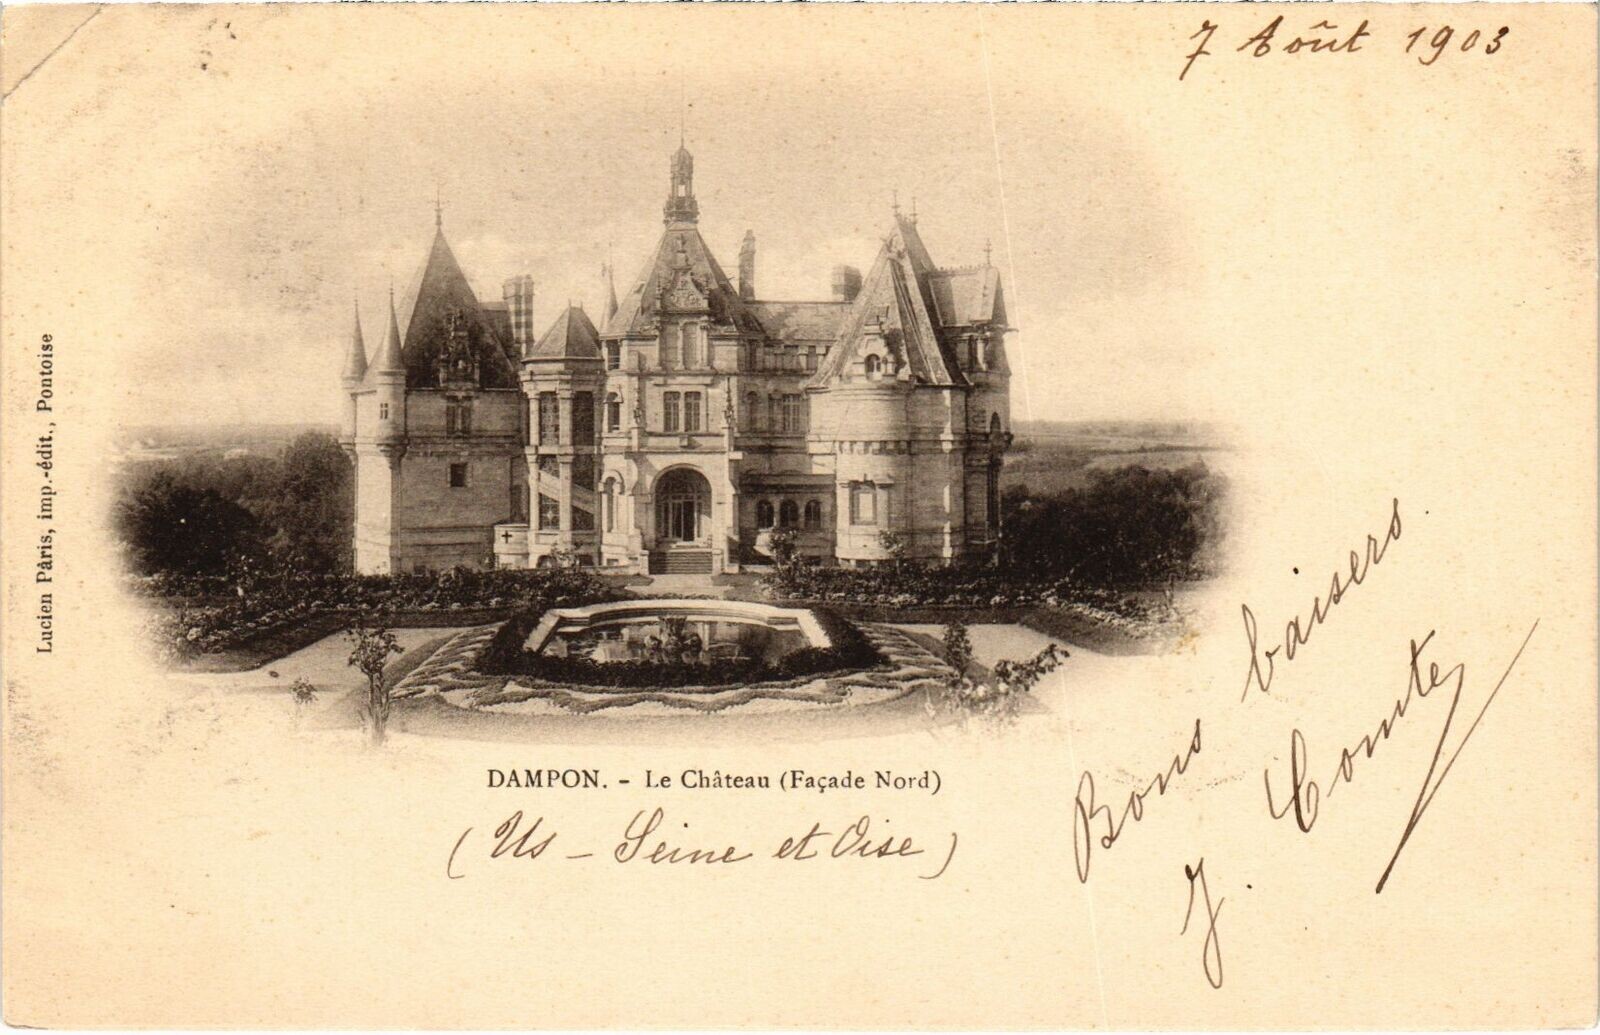 7 Août 1903
Lucien Pâris, imp.-édit., Pontoise
DAMPON. - Le Château (Façade Nord)
(Us - Seine et Oise)
Bons baisers.
J. Comte